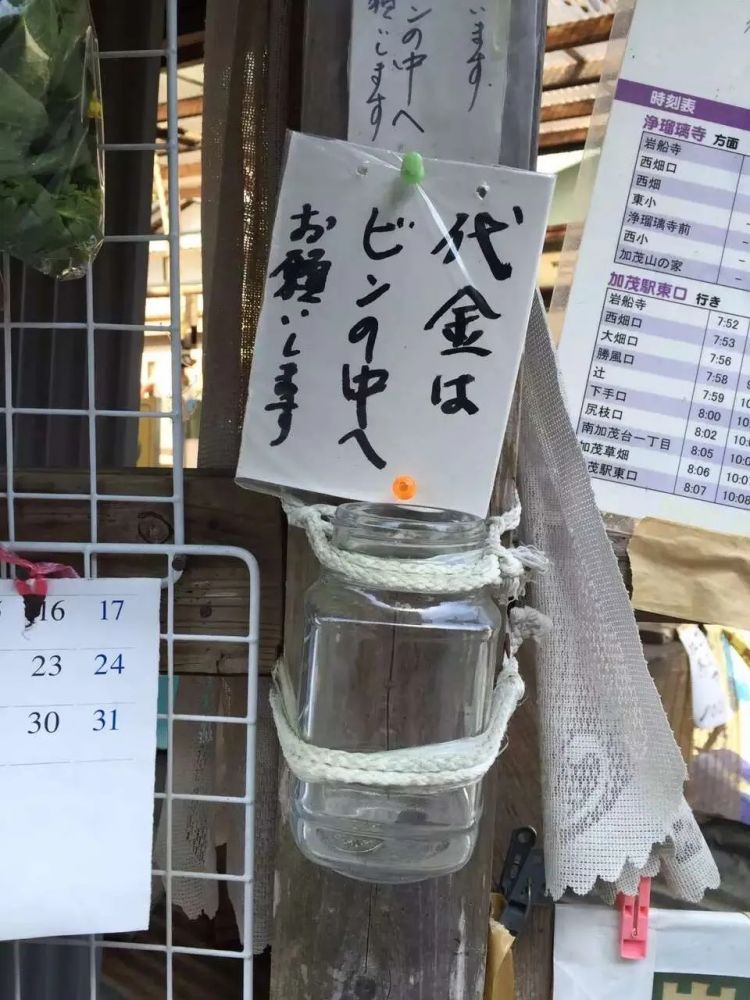 います
ビンの中へ
願いします
代金は
ビンの中へ
お願いします
時刻表
浄瑠璃寺 方面
岩船寺
西畑口
西畑
東小
浄瑠璃寺前
西小
加茂山の家
加茂駅東口 行き
岩船寺 7:52
西畑口 7:53
大畑口 7:56
勝風口 7:58
辻 7:59
下手口 8:00
尻枝口 8:02 10:0
南加茂台一丁目 8:05 10:0
加茂草畑 8:06 10:07
茂駅東口 8:07 10:08
16 17
23 24
30 31